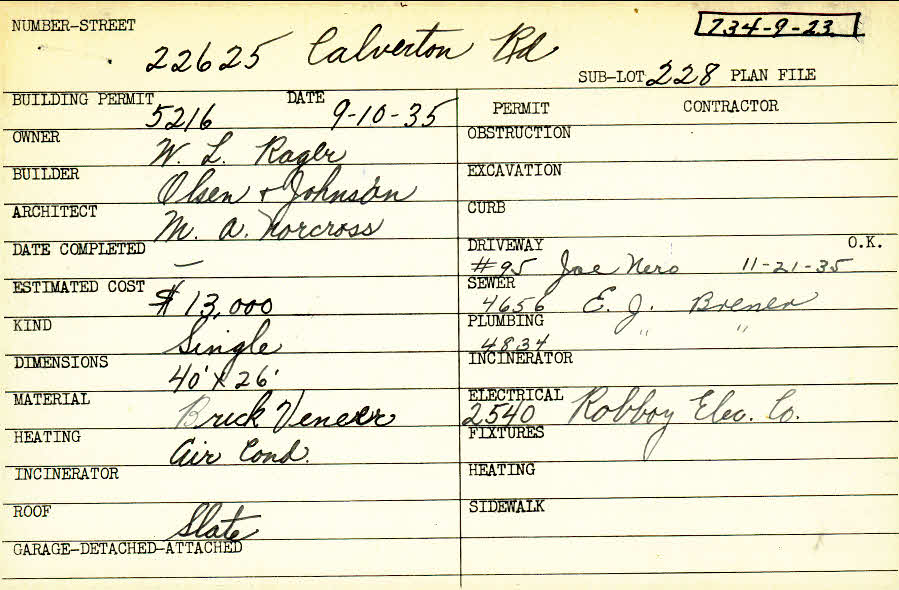 NUMBER-STREET 22625 Calverton Rd
734-9-23
SUB-LOT 228 PLAN FILE
BUILDING PERMIT 5216 DATE 9-10-35
OWNER W. L. Rager
BUILDER Olsen + Johnson
ARCHITECT M. A. Norcross
DATE COMPLETED —
ESTIMATED COST $13,000
KIND Single
DIMENSIONS 40' X 26'
MATERIAL Brick Veneer
HEATING Air Cond.
INCINERATOR
ROOF Slate
GARAGE-DETACHED-ATTACHED
PERMIT CONTRACTOR
OBSTRUCTION
EXCAVATION
CURB
DRIVEWAY O.K.
#95 Joe Nero 11-21-35
SEWER
4656 E. J. Brener
PLUMBING " "
4834
INCINERATOR
ELECTRICAL
2540 Robboy Elec. Co.
FIXTURES
HEATING
SIDEWALK